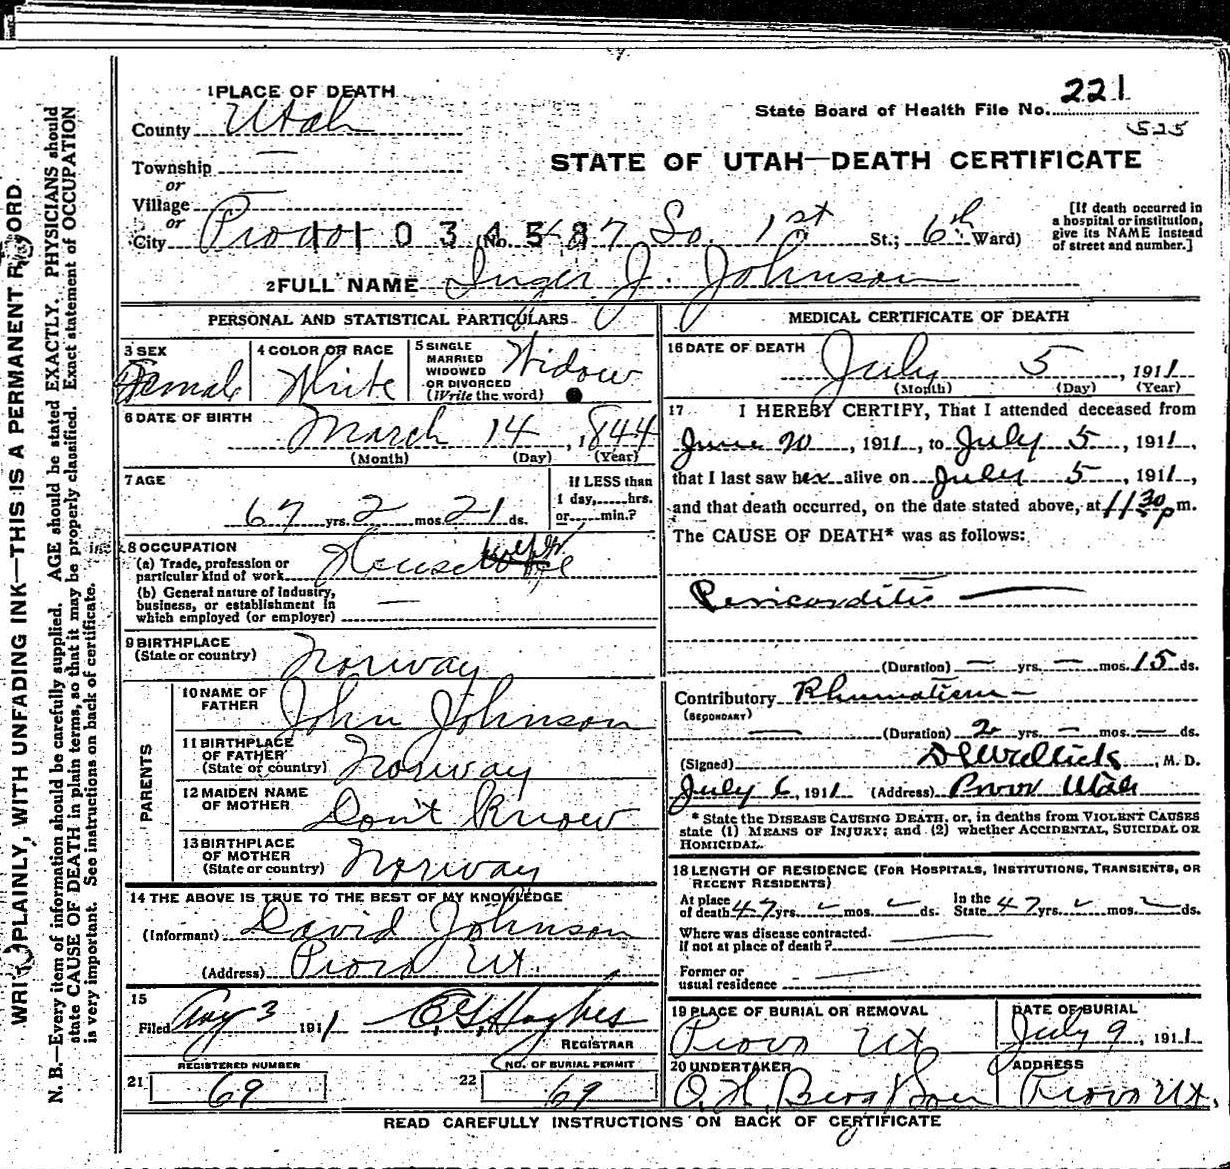 1 PLACE OF DEATH
County Utah
State Board of Health File No. 221
525
Township —
or
Village —
or
STATE OF UTAH—DEATH CERTIFICATE
City Provo (No. 487 So. 1st St.; 6th Ward)
11 034587
[If death occurred in
a hospital or institution,
give its NAME instead
of street and number.]
2 FULL NAME Inger J. Johnson
PERSONAL AND STATISTICAL PARTICULARS
3 SEX
Female
4 COLOR OR RACE
White
5 SINGLE
MARRIED
WIDOWED
OR DIVORCED
(Write the word)
Widow
6 DATE OF BIRTH
March 14, 1844
(Month) (Day) (Year)
7 AGE
67 yrs. 2 mos. 21 ds.
If LESS than
1 day, hrs.
or min.?
8 OCCUPATION
(a) Trade, profession or
particular kind of work House
(b) General nature of industry,
business, or establishment in
which employed (or employer) —
9 BIRTHPLACE
(State or country) Norway
PARENTS
10 NAME OF
FATHER John Johnson
11 BIRTHPLACE
OF FATHER
(State or country) Norway
12 MAIDEN NAME
OF MOTHER Don't Know
13 BIRTHPLACE
OF MOTHER
(State or country) Norway
14 THE ABOVE IS TRUE TO THE BEST OF MY KNOWLEDGE
(Informant) David Johnson
(Address) Provo Ut.
15
Filed Aug 3 1911 Hughes
REGISTRAR
REGISTERED NUMBER
21 69
NO. OF BURIAL PERMIT
22 69
MEDICAL CERTIFICATE OF DEATH
16 DATE OF DEATH
July 5, 1911
(Month) (Day) (Year)
17 I HEREBY CERTIFY, That I attended deceased from
June 20, 1911, to July 5, 1911,
that I last saw her alive on July 5, 1911,
and that death occurred, on the date stated above, at 11 30 p m.
The CAUSE OF DEATH* was as follows:
Pericarditis —
(Duration) — yrs. — mos. 15 ds.
Contributory Rhumatism —
(SECONDARY)
— (Duration) 2 yrs. — mos. — ds.
(Signed) , M. D.
July 6, 1911 (Address) Provo Utah
* State the DISEASE CAUSING DEATH, or, in deaths from VIOLENT CAUSES
state (1) MEANS OF INJURY; and (2) whether ACCIDENTAL, SUICIDAL OR
HOMICIDAL.
18 LENGTH OF RESIDENCE (FOR HOSPITALS, INSTITUTIONS, TRANSIENTS, OR
RECENT RESIDENTS)
At place
of death 47 yrs. mos. ds.
In the
State 47 yrs. mos. ds.
Where was disease contracted.
if not at place of death?
Former or
usual residence
19 PLACE OF BURIAL OR REMOVAL
Provo Ut
DATE OF BURIAL
July 9, 1911
20 UNDERTAKER
O. H. Berg & Son
ADDRESS
Provo Ut.
READ CAREFULLY INSTRUCTIONS ON BACK OF CERTIFICATE
WRITE PLAINLY, WITH UNFADING INK—THIS IS A PERMANENT RECORD
N. B.—Every item of information should be carefully supplied. AGE should be stated EXACTLY. PHYSICIANS should
state CAUSE OF DEATH in plain terms, so that it may be properly classified. Exact statement of OCCUPATION
is very important. See instructions on back of certificate.